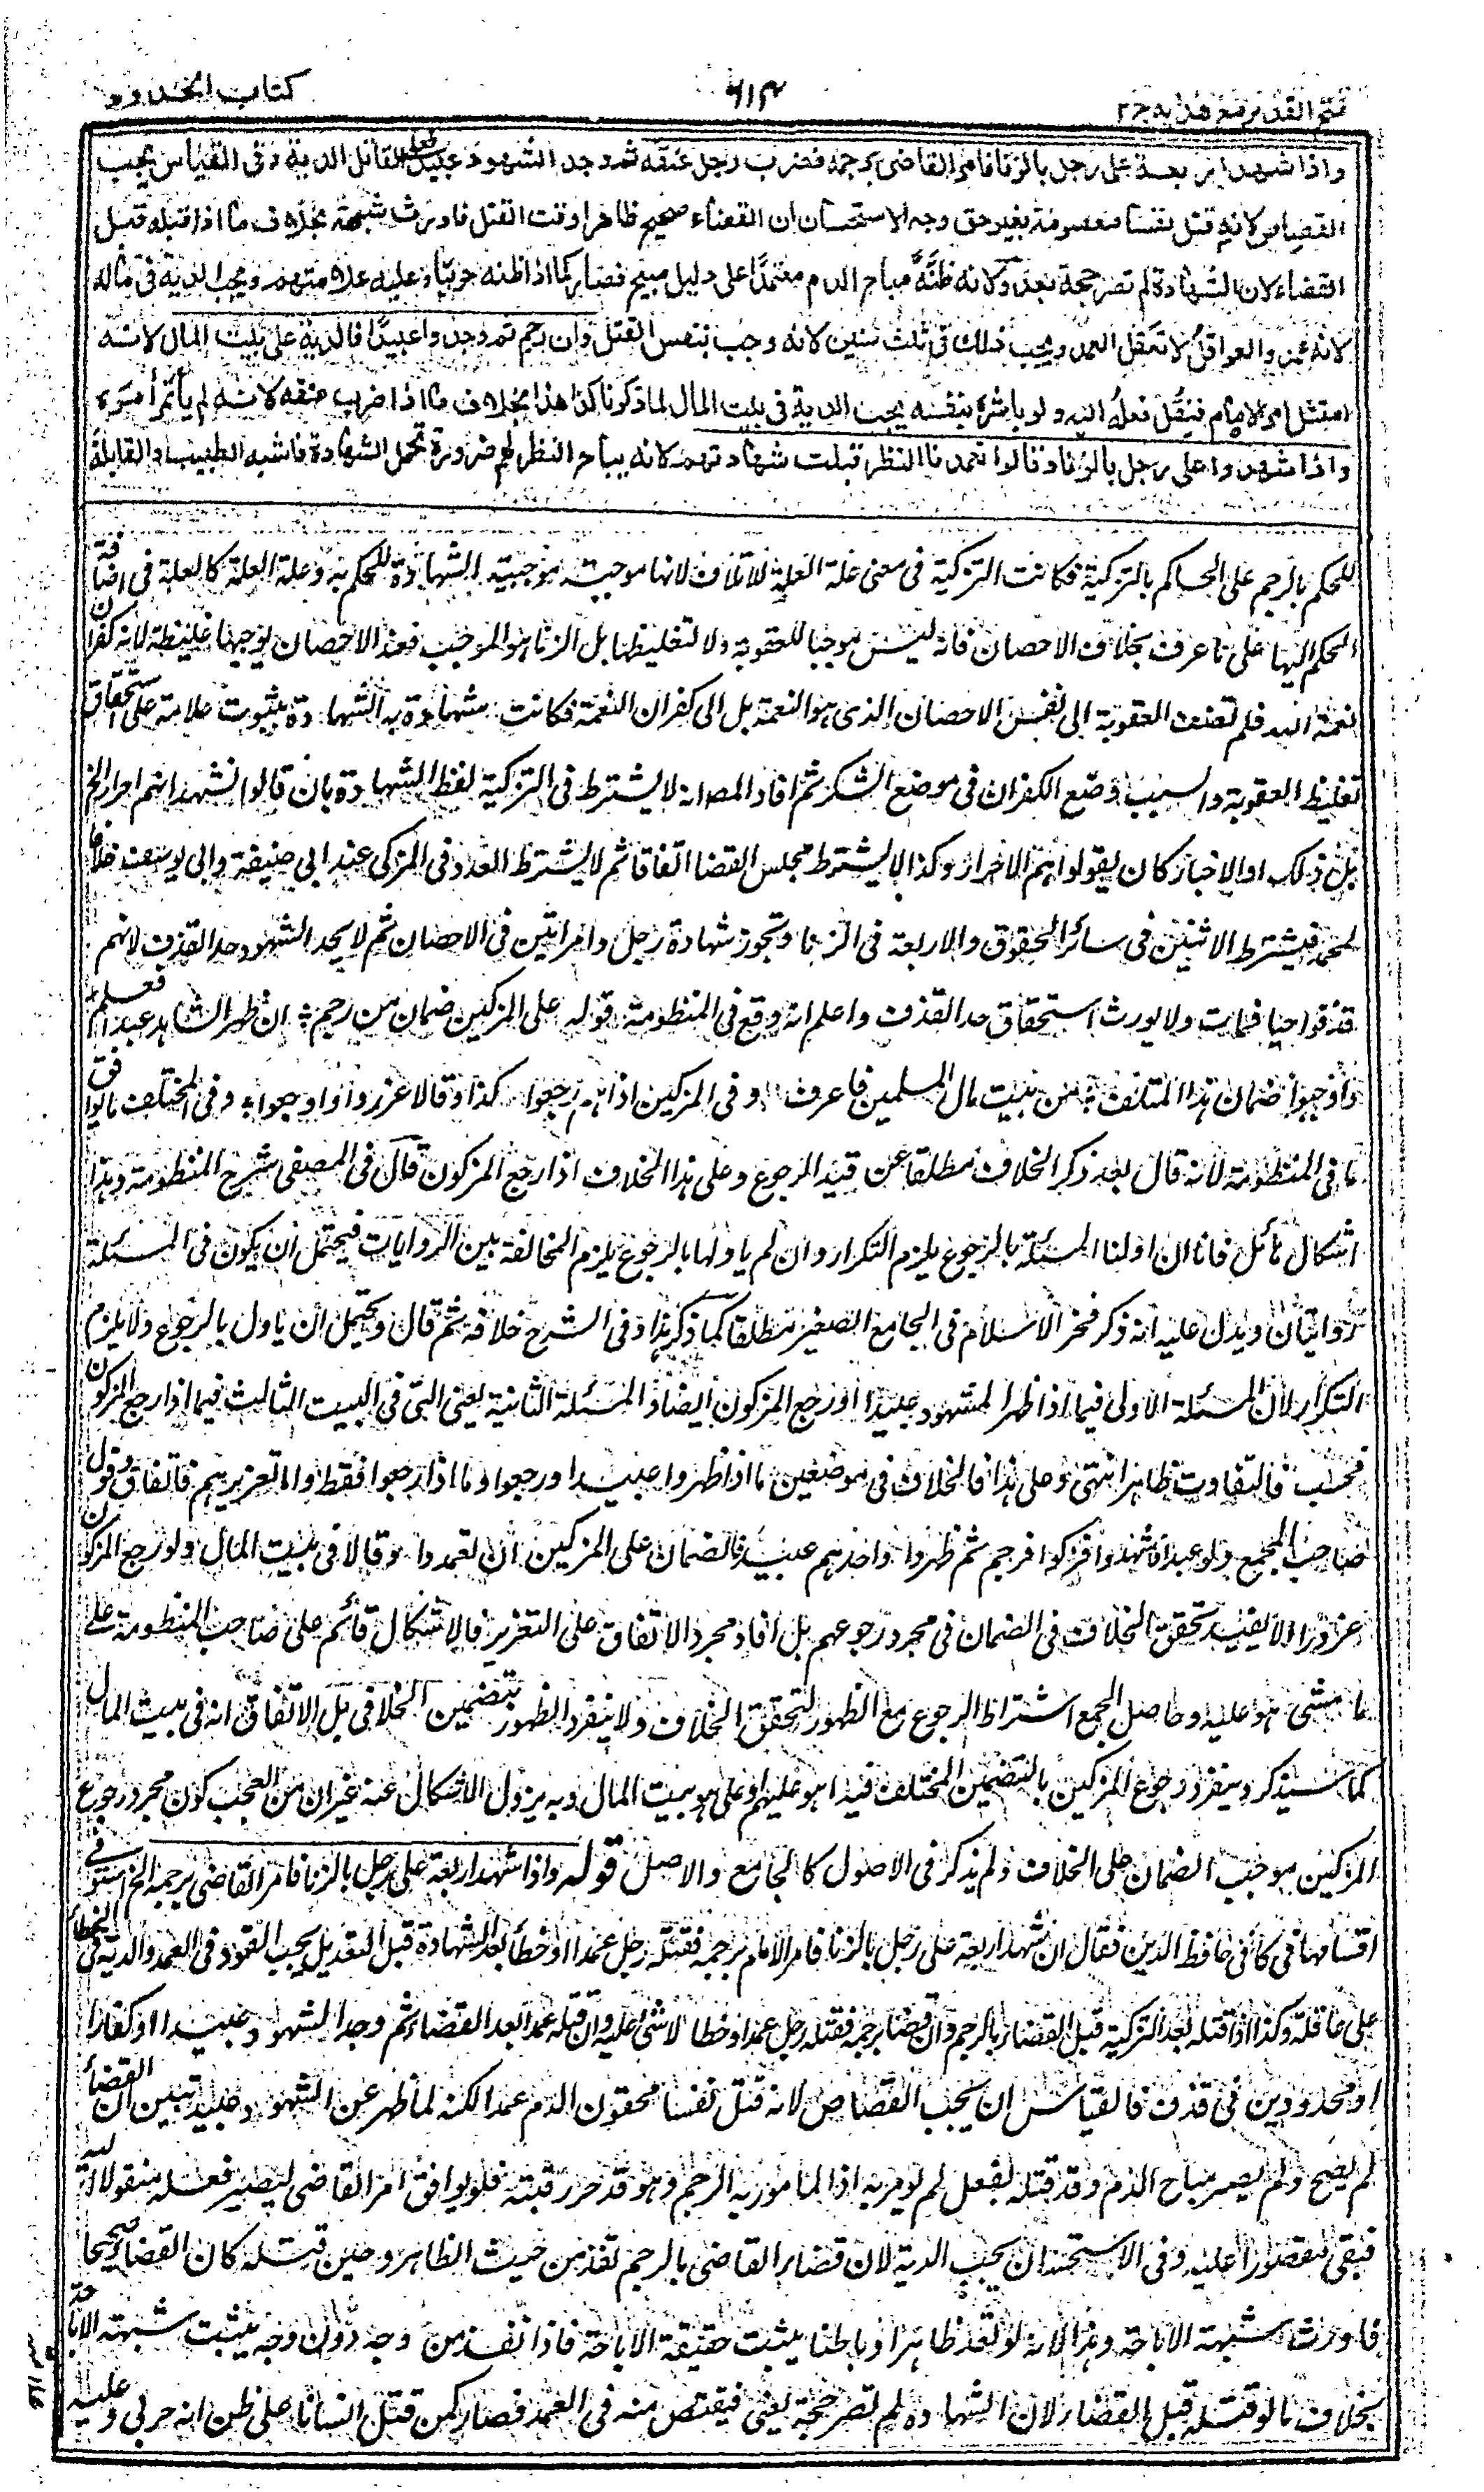 فتح القدير مع هدايه ج ٢
٦١٤
كتاب الحدود
واذا شهد اربعة على رجل بالزنا فامر القاضى برجمه فضرب رجل عنقه ثم وجد الشهود عبيدا فعلى القاتل الدية وفى القياس يجب
القصاص لانه قتل نفسا معصومة بغير حق وجه الاستحسان ان القضاء صحيح ظاهرا وقت القتل فاورث شبهة بخلاف ما اذا قتله قبل
القضاء لان الشهادة لم تصر حجة بعد ولانه ظنه مباح الدم معتمدا على دليل مبيح فصار كما اذا ظنه حربيا وعليه علامتهم ويجب الدية فى ماله
لانه عمد والعواقل لا تعقل العمد ويجب ذلك فى ثلث سنين لانه وجب بنفس القتل وان رجم ثم وجدوا عبيدا فالدية على بيت المال لانه
امتثل امر الامام فينقل فعله اليه ولو باشره بنفسه يجب الدية فى بيت المال لما ذكرنا كذا هذا بخلاف ما اذا ضرب عنقه لانه لم يأتمر أمره
واذا شهدوا على رجل بالزنا وقالوا تعمدنا النظر قبلت شهادتهم لانه يباح النظر لهم ضرورة تحمل الشهادة فاشبه الطبيب والقابلة
للحكم بالرجم على الحاكم بالتزكية فكانت التزكية فى معنى علة العلة للاتلاف لانها موجبة موجبية الشهادة للحكم به وعلة العلة كالعلة فى اضافة
الحكم اليها على ما عرف بخلاف الاحصان فانه ليس موجبا للعقوبة ولا لتغليظها بل الزنا هو الموجب فعند الاحصان يوجبها غليظة لانه كفران
نعمة الله فلم تضف العقوبة الى نفس الاحصان الذى هو النعمة بل الى كفران النعمة فكانت شهادة به الشهادة بثبوت علامة على استحقاق
تغليظ العقوبة والسبب وضع الكفران فى موضع الشكر ثم افاد المص انه لا يشترط فى التزكية لفظ الشهادة بان قالوا نشهد انهم احرار الخ
بل ذلك او الاخبار كان يقولوا هم الاحرار وكذا لا يشترط مجلس القضا اتفاقا ثم لا يشترط العدد فى المزكى عند ابى حنيفة وابى يوسف خلافا
لمحمد فيشترط الاثنين فى سائر الحقوق والاربعة فى الزنا وتجوز شهادة رجل وامراتين فى الاحصان ثم لا يحد الشهود حد القذف لانهم
قذفوا حيا فمات ولا يورث استحقاق حد القذف واعلم انه وقع فى المنظومة قوله على المزكين ضمان من رجم ۞ ان ظهر الشاهد عبدا فعلم
واوجبوا ضمان هذا المتلف ۞ من بيت مال المسلمين فاعرف ۞ وفى المزكين اذا هم رجعوا كذا وقالا عزروا واوجعوا ۞ وفى المختلف ما يوافق
ما فى المنظومة لانه قال بعد ذكر الخلاف مطلقا عن قيد الرجوع وعلى هذا الخلاف اذا رجع المزكون قال فى المصفى شرح المنظومة وهذا
اشكال هائل فانا ان اولنا المسئلة بالرجوع يلزم التكرار وان لم ياولها بالرجوع يلزم المخالفة بين الروايات فيحتمل ان يكون فى المسئلة
روايتان ويدل عليه انه ذكر فخر الاسلام فى الجامع الصغير مطلقا كما ذكر هذا وفى الشرح خلافه ثم قال ويحتمل ان ياول بالرجوع ولا يلزم
التكرار لان المسئلة الاولى فيما اذا ظهر الشهود عبيدا ورجع المزكون ايضا والمسئلة الثانية يعنى التى فى البيت الثالث فيما اذا رجع المزكون
فحسب فالتفاوت ظاهر انتهى وعلى هذا فالخلاف فى موضعين ما اذا ظهروا عبيدا ورجعوا وما اذا رجعوا فقط واما تعزيرهم فاتفاق وقول
صاحب المجمع ولو عبدا شهدوا فزكوا فرجم ثم ظهروا واحدهم عبيد فالضمان على المزكين ان تعمدوا وقالا فى بيت المال ولو رجع المزكون
عزروا لا يفيد تحقق الخلاف فى الضمان فى مجرد رجوعهم بل افاد مجرد الاتفاق على التعزير فالاشكال قائم على صاحب المنظومة على
ما مشى هو عليه وحاصل المجمع اشتراط الرجوع مع الظهور لتحقق الخلاف ولا ينفرد الظهور بتضمين الخلافى بل الاتفاق انه فى بيت المال
كما سيذكر وينفرد رجوع المزكين بالتضمين المختلف فيه اهو عليهم او على هو ببيت المال وبه يزول الاشكال عنه غير ان من العجب كون مجرد رجوع
المزكين موجب الضمان على الخلاف ولم يذكر فى الاصول كالجامع والاصل قوله واذا شهد اربعة على رجل بالزنا فامر القاضى برجمه الخ استوفى
اقسامها فى كافى حافظ الدين فقال ان شهد اربعة على رجل بالزنا فامر الامام برجمه فقتله رجل عمدا او خطأ بعد الشهادة قبل التعديل يجب القود فى العمد والدية فى الخطأ
على عاقلته وكذا اذا قتله بعد التزكية قبل القضاء بالرجم وان قضا برجمه فقتله رجل عمدا او خطا لا شئ عليه وان قتله عمدا بعد القضاء ثم وجد الشهود عبيدا او كفارا
او محدودين فى قذف فالقياس ان يجب القصاص لانه قتل نفسا محقون الدم عمدا لكنه لما ظهر عن الشهود عبيد تبين ان القضاء
لم يصح ولم يصر مباح الدم وقد قتله بفعل لم يومر به اذا لمامور به الرجم وهو قد حز رقبته فلو يوافق امر القاضى ليصير فعله منقولا اليه
فبقى مقصورا عليه وفى الاستحسان يجب الدية لان قضاء القاضى بالرجم نفذ من حيث الظاهر وحين قتله كان القضاء صحيحا
فاورث شبهة الاباحة وهذا لانه لو نفذ ظاهرا وباطنا يثبت حقيقة الاباحة فاذا نفذ من وجه دون وجه يثبت شبهة الاباحة
بخلاف ما لو قتله قبل القضاء لان الشهادة لم تصر حجة يعنى فيقتص منه فى العمد فصار كمن قتل انسانا على ظن انه حربى وعليه